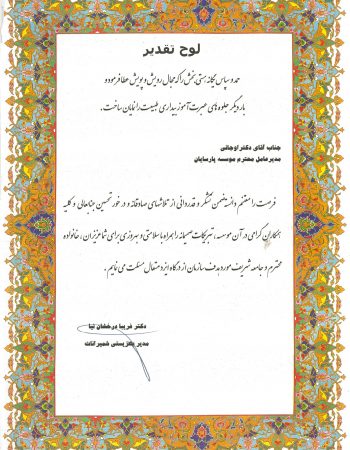 لوح تقدیر
حمد و سپاس یگانه هستی بخش را که مجال رویش و پویش عطا فرمود و
بار دیگر جلوه های عبرت آموز بیداری طبیعت را نمایان ساخت.
جناب آقای دکتر اوجاتی
مدیرعامل محترم موسسه پارسایان
فرصت را مغتنم دانسته ضمن تشکر و قدردانی از تلاشهای صادقانه و در خور تحسین جنابعالی و کلیه
همکاران گرامی در آن موسسه، تبریکات صمیمانه را همراه با سلامتی و بهروزی برای شما عزیزان، خانواده
محترم و جامعه شریف مورد هدف سازمان از درگاه ایزد متعال مسئلت می نمایم.
دکتر فریبا درخشان نیا
مدیر بهزیستی شمیرانات